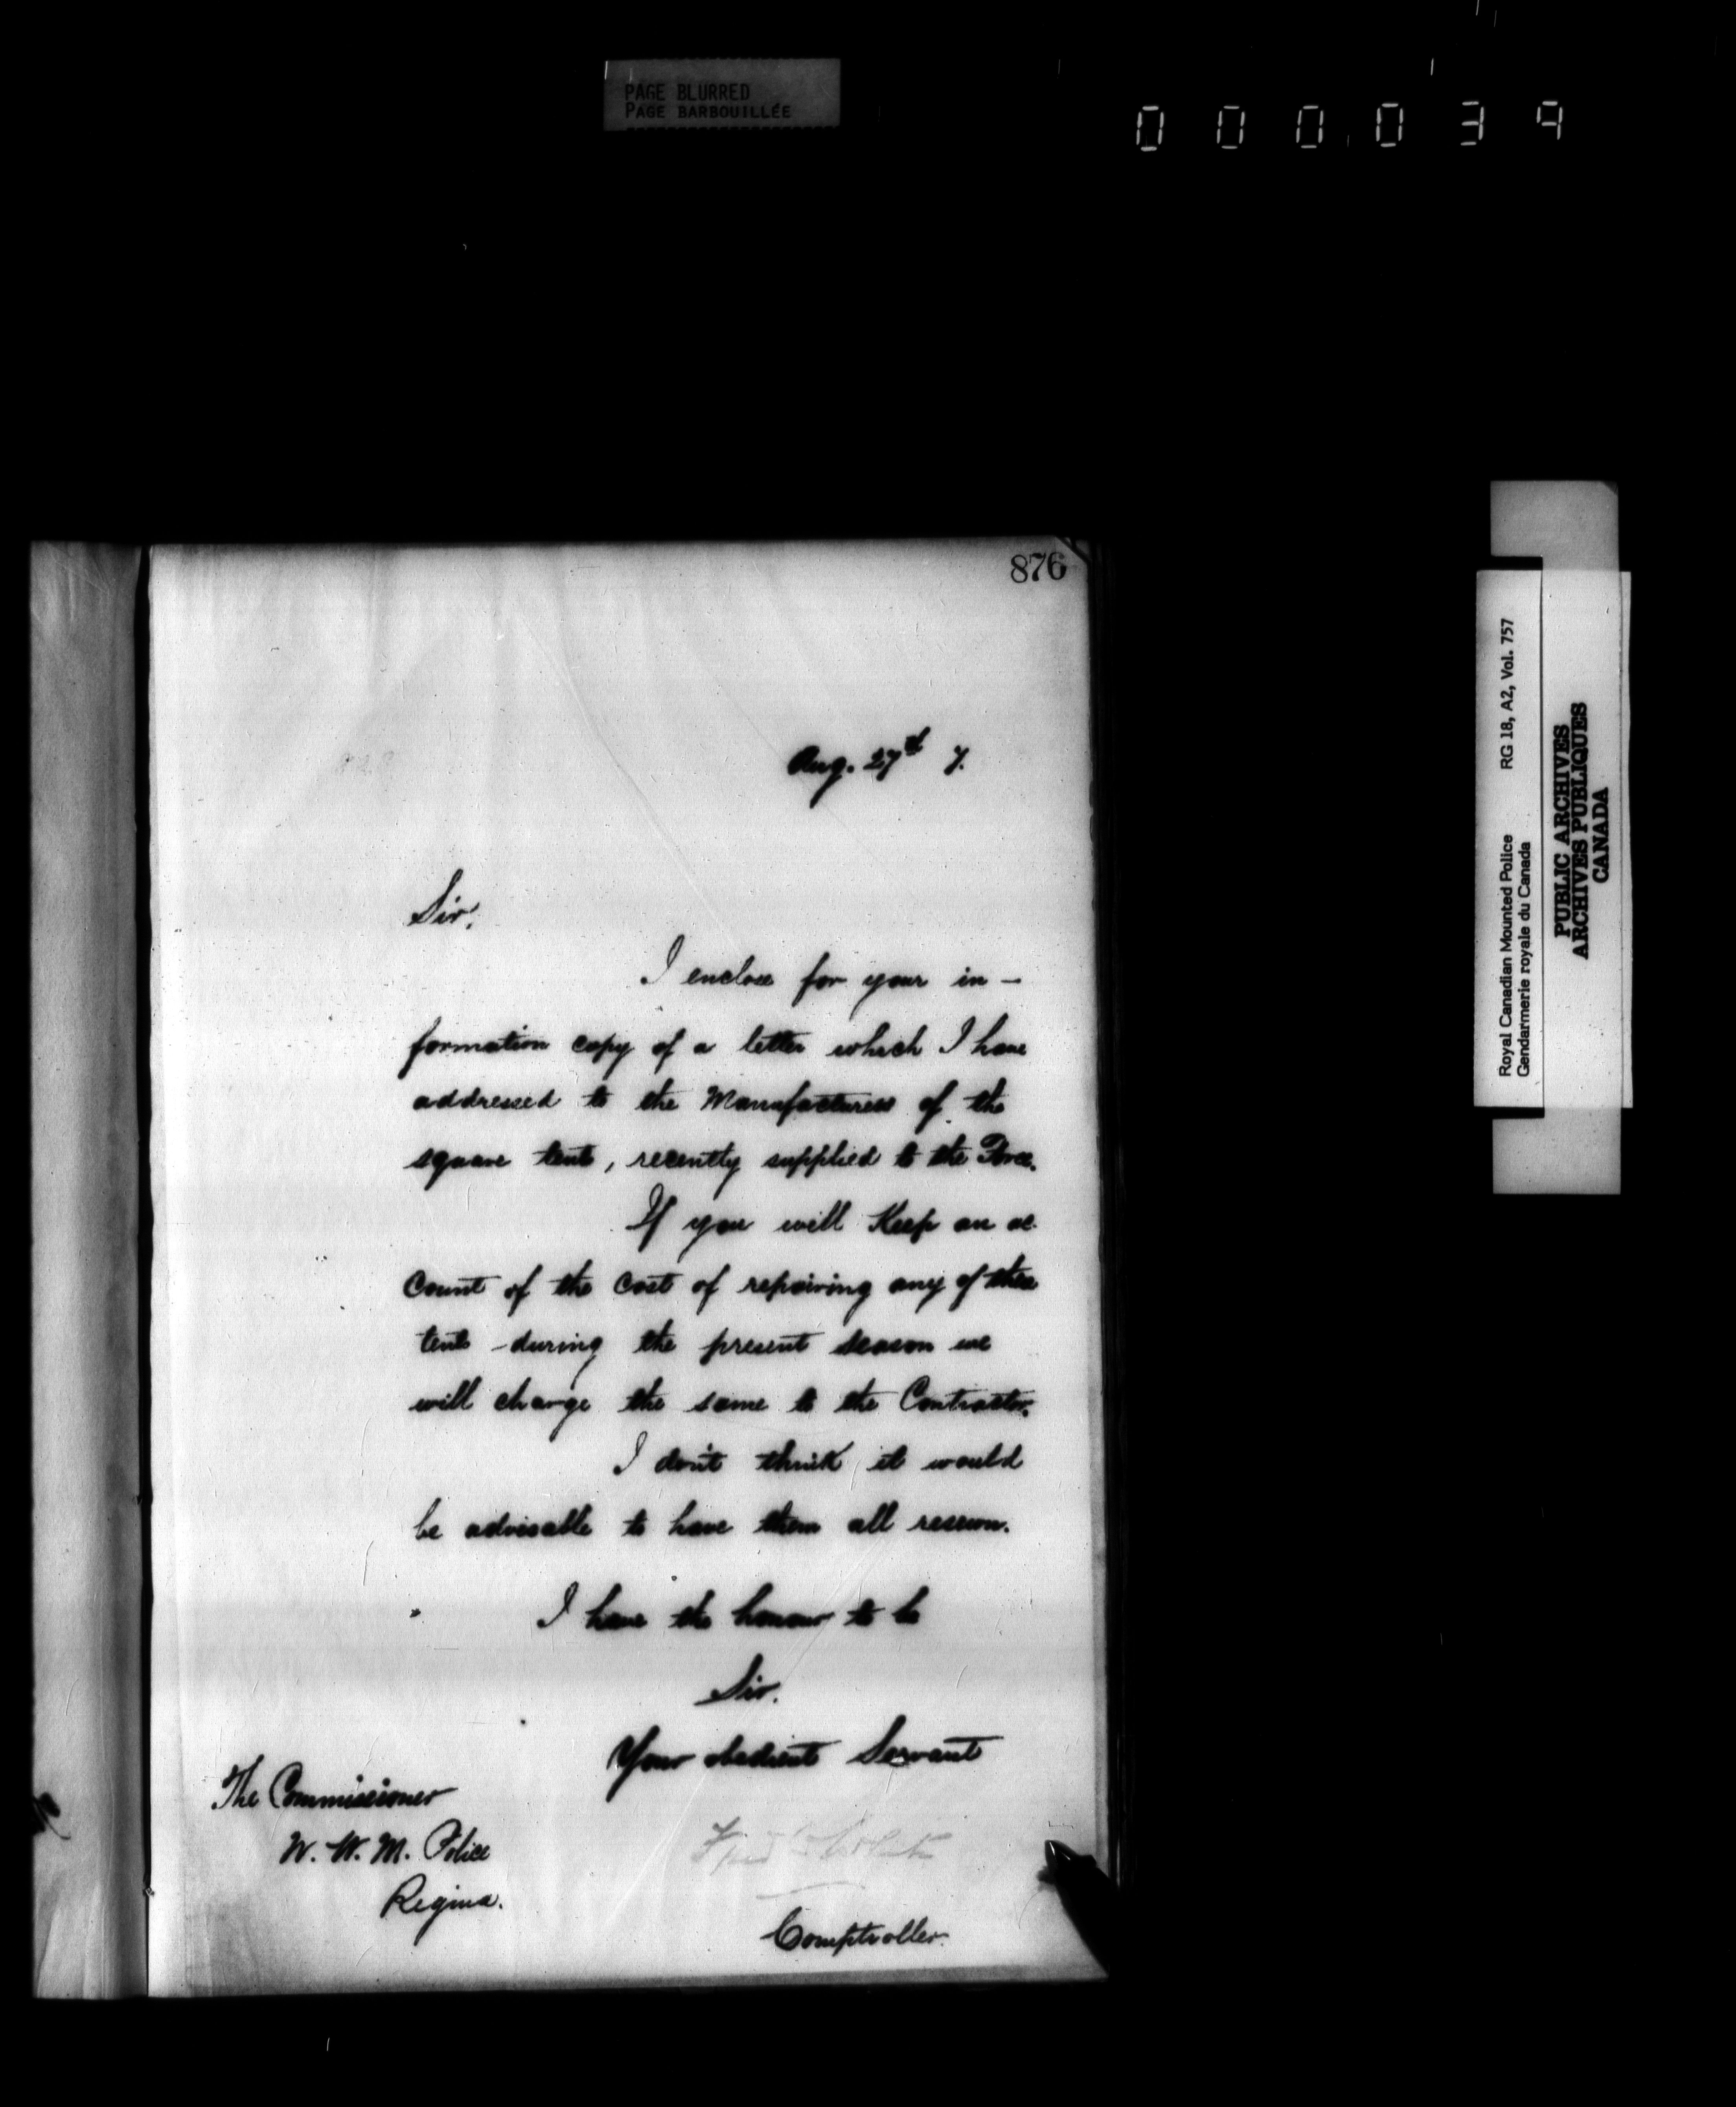 PAGE BLURRED
PAGE BARBOUILLÉE
0 0 0 0 3 9
876
Aug. 27th 7.
Sir,
I enclose for your in-
formation copy of a letter which I have
addressed to the Manufacturers of the
square tents, recently supplied to the Force.
If you will Keep an ac
count of the cost of repairing any of these
tents during the present season we
will charge the same to the Contractor.
I don't think it would
be advisable to have them all resewn.
I have the honour to be
Sir.
Your obedient Servant
Fred White
Comptroller.
The Commissioner
N. W. M. Police
Regina.
Royal Canadian Mounted Police RG 18, A2, Vol. 757
Gendarmerie royale du Canada
PUBLIC ARCHIVES
ARCHIVES PUBLIQUES
CANADA